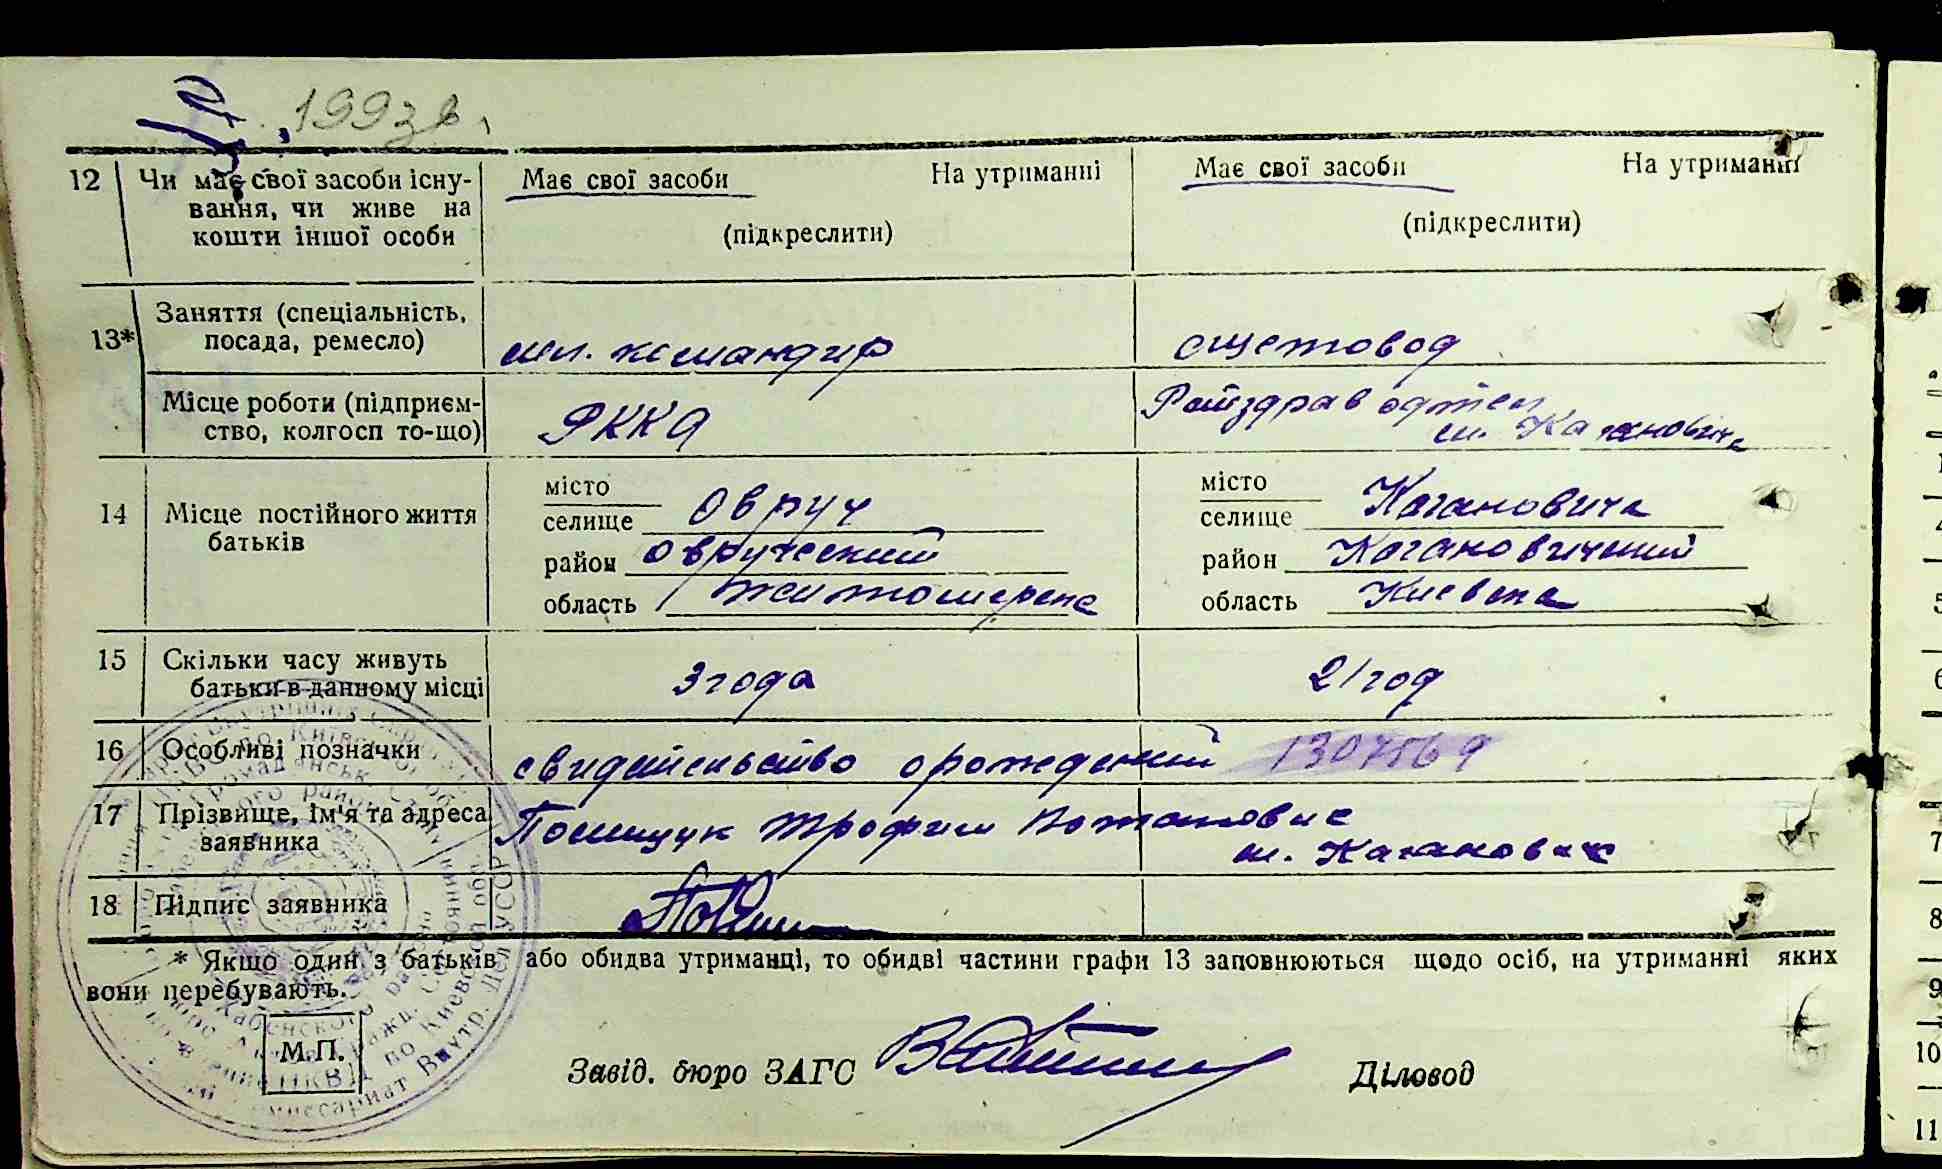 1993 в.
12 Чи має свої засоби існу-
вання, чи живе на
кошти іншої особи
Має свої засоби На утриманні
(підкреслити)
Має свої засоби На утриманні
(підкреслити)
13* Заняття (спеціальність,
посада, ремесло)
мл. командир
счетовод
Місце роботи (підприєм-
ство, колгосп то-що)
РККА
Райздрав отдел
м. Каганович
14 Місце постійного життя
батьків
місто
селище Овруч
район Овручский
область Житомирска
місто
селище Кагановича
район Кагановичский
область Киевска
15 Скільки часу живуть
батьки в данному місці
3 года
21 год
16 Особливі позначки
свидетельство о рождений 1307569
17 Прізвище, ім'я та адреса
заявника
Трофим Потапович
м. Каганович
18 Підпис заявника
* Якщо один з батьків або обидва утриманці, то обидві частини графи 13 заповнюються щодо осіб, на утриманні яких
вони перебувають.
М.П.
Завід. бюро ЗАГС
Діловод
7
8
9
10
11